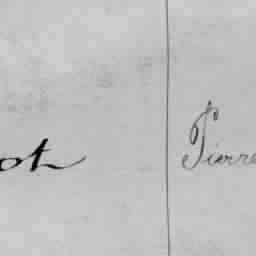 ot Pierre